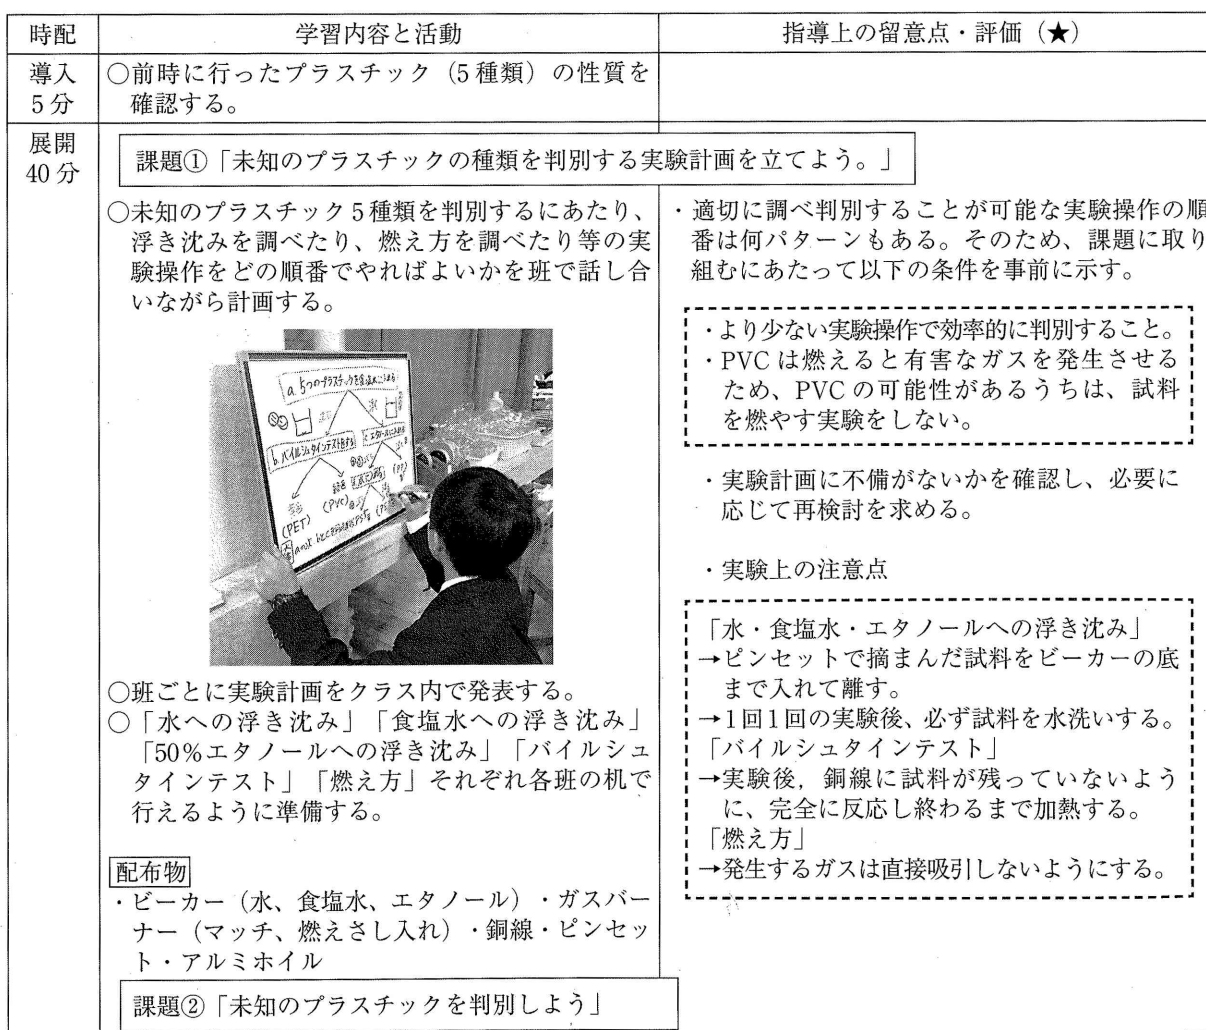 時配
学習内容と活動
指導上の留意点・評価（★）
導入
5分
○前時に行ったプラスチック（5種類）の性質を
確認する。
展開
40分
課題①「未知のプラスチックの種類を判別する実験計画を立てよう。」
○未知のプラスチック5種類を判別するにあたり、
浮き沈みを調べたり、燃え方を調べたり等の実
験操作をどの順番でやればよいかを班で話し合
いながら計画する。
a.5つのプラスチックを食塩水に入れる
b.バイルシュタインテストをする
(PET)
(PVC)
○班ごとに実験計画をクラス内で発表する。
○「水への浮き沈み」「食塩水への浮き沈み」
「50%エタノールへの浮き沈み」「バイルシュ
タインテスト」「燃え方」それぞれ各班の机で
行えるように準備する。
配布物
・ビーカー（水、食塩水、エタノール）・ガスバー
ナー（マッチ、燃えさし入れ）・銅線・ピンセッ
ト・アルミホイル
課題②「未知のプラスチックを判別しよう」
・適切に調べ判別することが可能な実験操作の順
番は何パターンもある。そのため、課題に取り
組むにあたって以下の条件を事前に示す。
・より少ない実験操作で効率的に判別すること。
・PVCは燃えると有害なガスを発生させる
ため、PVCの可能性があるうちは、試料
を燃やす実験をしない。
・実験計画に不備がないかを確認し、必要に
応じて再検討を求める。
・実験上の注意点
「水・食塩水・エタノールへの浮き沈み」
→ピンセットで摘まんだ試料をビーカーの底
まで入れて離す。
→1回1回の実験後、必ず試料を水洗いする。
「バイルシュタインテスト」
→実験後，銅線に試料が残っていないよう
に、完全に反応し終わるまで加熱する。
「燃え方」
→発生するガスは直接吸引しないようにする。